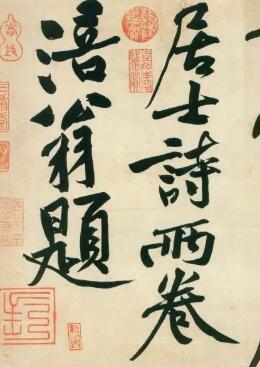 居士詩兩卷
涪翁題